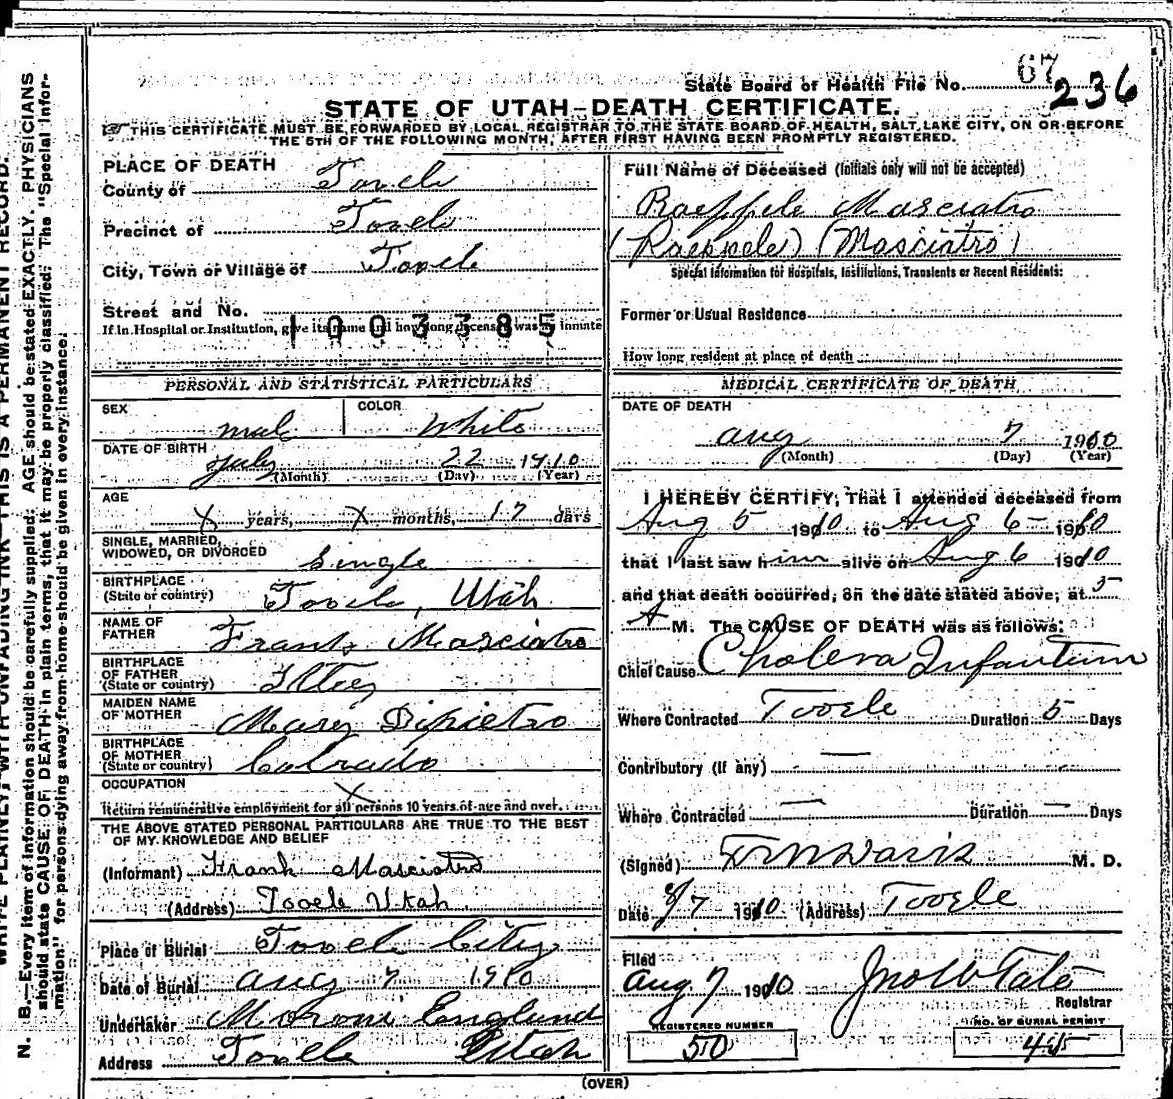 67
State Board of Health File No. 236
STATE OF UTAH—DEATH CERTIFICATE.
THIS CERTIFICATE MUST BE FORWARDED BY LOCAL REGISTRAR TO THE STATE BOARD OF HEALTH, SALT LAKE CITY, ON OR BEFORE
THE 5TH OF THE FOLLOWING MONTH, AFTER FIRST HAVING BEEN PROMPTLY REGISTERED.
PLACE OF DEATH
County of Tooele
Precinct of Tooele
City, Town or Village of Tooele
Street and No.
If in Hospital or Institution, give its name and how long deceased was an inmate
1003385
PERSONAL AND STATISTICAL PARTICULARS
SEX male COLOR White
DATE OF BIRTH July 22 1910
(Month) (Day) (Year)
AGE
X years, X months, 17 days
SINGLE, MARRIED,
WIDOWED, OR DIVORCED single
BIRTHPLACE
(State or country) Tooele, Utah
NAME OF
FATHER Frank Masciatro
BIRTHPLACE
OF FATHER
(State or country)
MAIDEN NAME
OF MOTHER Mary Dipietro
BIRTHPLACE
OF MOTHER
(State or country) Colorado
OCCUPATION X
Return remunerative employment for all persons 10 years of age and over.
THE ABOVE STATED PERSONAL PARTICULARS ARE TRUE TO THE BEST
OF MY KNOWLEDGE AND BELIEF
(Informant) Frank Masciatro
(Address) Tooele Utah
Place of Burial Tooele City
Date of Burial aug 7 1910
Undertaker Moroni Englund
Address Tooele Utah
Full Name of Deceased (Initials only will not be accepted)
Raeppele Masciatro
(Raeppele) (Masciatro)
Special Information for Hospitals, Institutions, Transients or Recent Residents:
Former or Usual Residence
How long resident at place of death
MEDICAL CERTIFICATE OF DEATH
DATE OF DEATH
aug 7 1910
(Month) (Day) (Year)
I HEREBY CERTIFY, That I attended deceased from
Aug 5 1910 to Aug 6 1910
that I last saw him alive on Aug 6 1910
and that death occurred, on the date stated above, at 5
A M. The CAUSE OF DEATH was as follows:
Chief Cause Cholera Infantum
Where Contracted Tooele Duration 5 Days
Contributory (If any) —
Where Contracted — Duration — Days
(Signed) Davis M. D.
Date 8/7 1910 (Address) Tooele
Filed
Aug. 7 1910 Jno W Tate
Registrar
REGISTERED NUMBER
50
NO. OF BURIAL PERMIT
45
(OVER)
WRITE PLAINLY, WITH UNFADING INK—THIS IS A PERMANENT RECORD.
N. B.—Every item of information should be carefully supplied. AGE should be stated EXACTLY. PHYSICIANS
should state CAUSE OF DEATH in plain terms, that it may be properly classified. The "Special Infor-
mation" for persons dying away from home should be given in every instance.